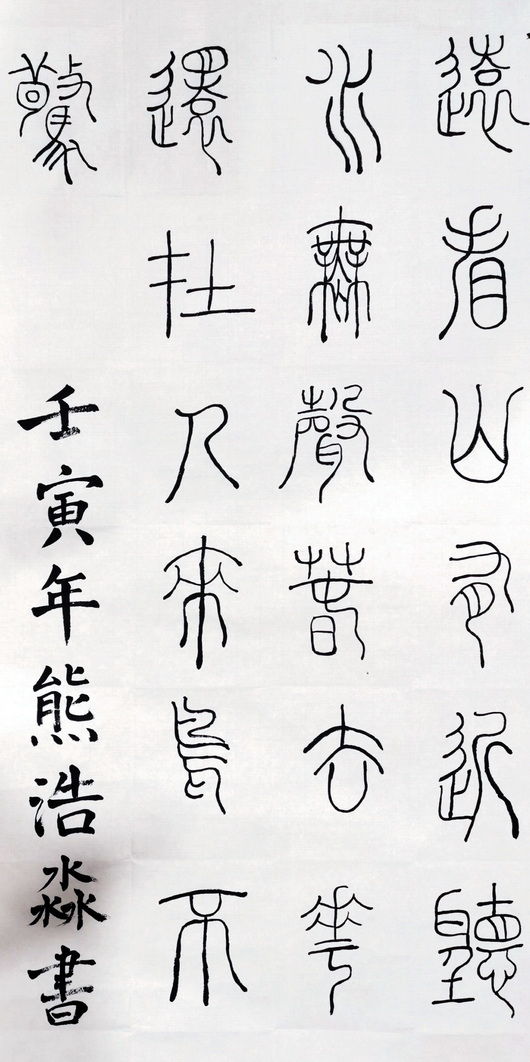 遠看山有近聽
水無聲春去花
還在人來鳥不
驚
壬寅年熊浩淼書